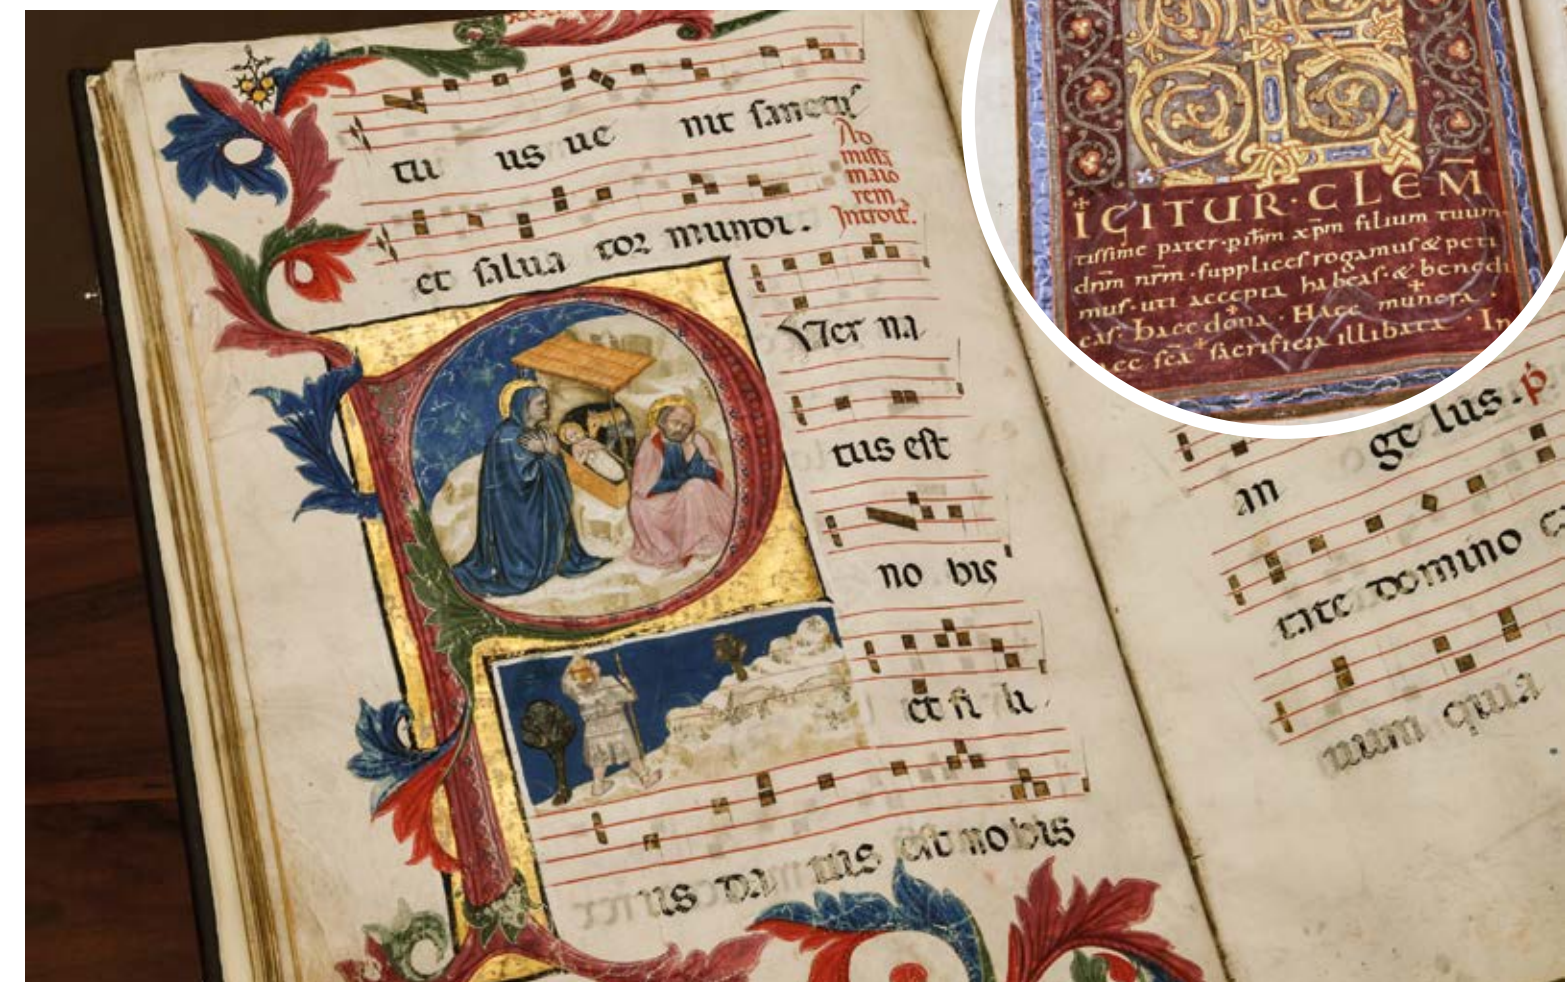 tu us ue nit sanctus
et salua tor mundi.
Ad
missa
maio
rem
Introit.
Ver na
tus est
no bis
et fi li
us da tus est nobis
IGITUR·CLEM̄
tissime pater·p ihm xpm filium tuum
dnm nrm·supplices rogamus & peti
mus·uti accepta habeas·& benedi
cas·haec dona·Haec munera·
sca sacrificia illibata·In
an ge lus.
domino
num quia